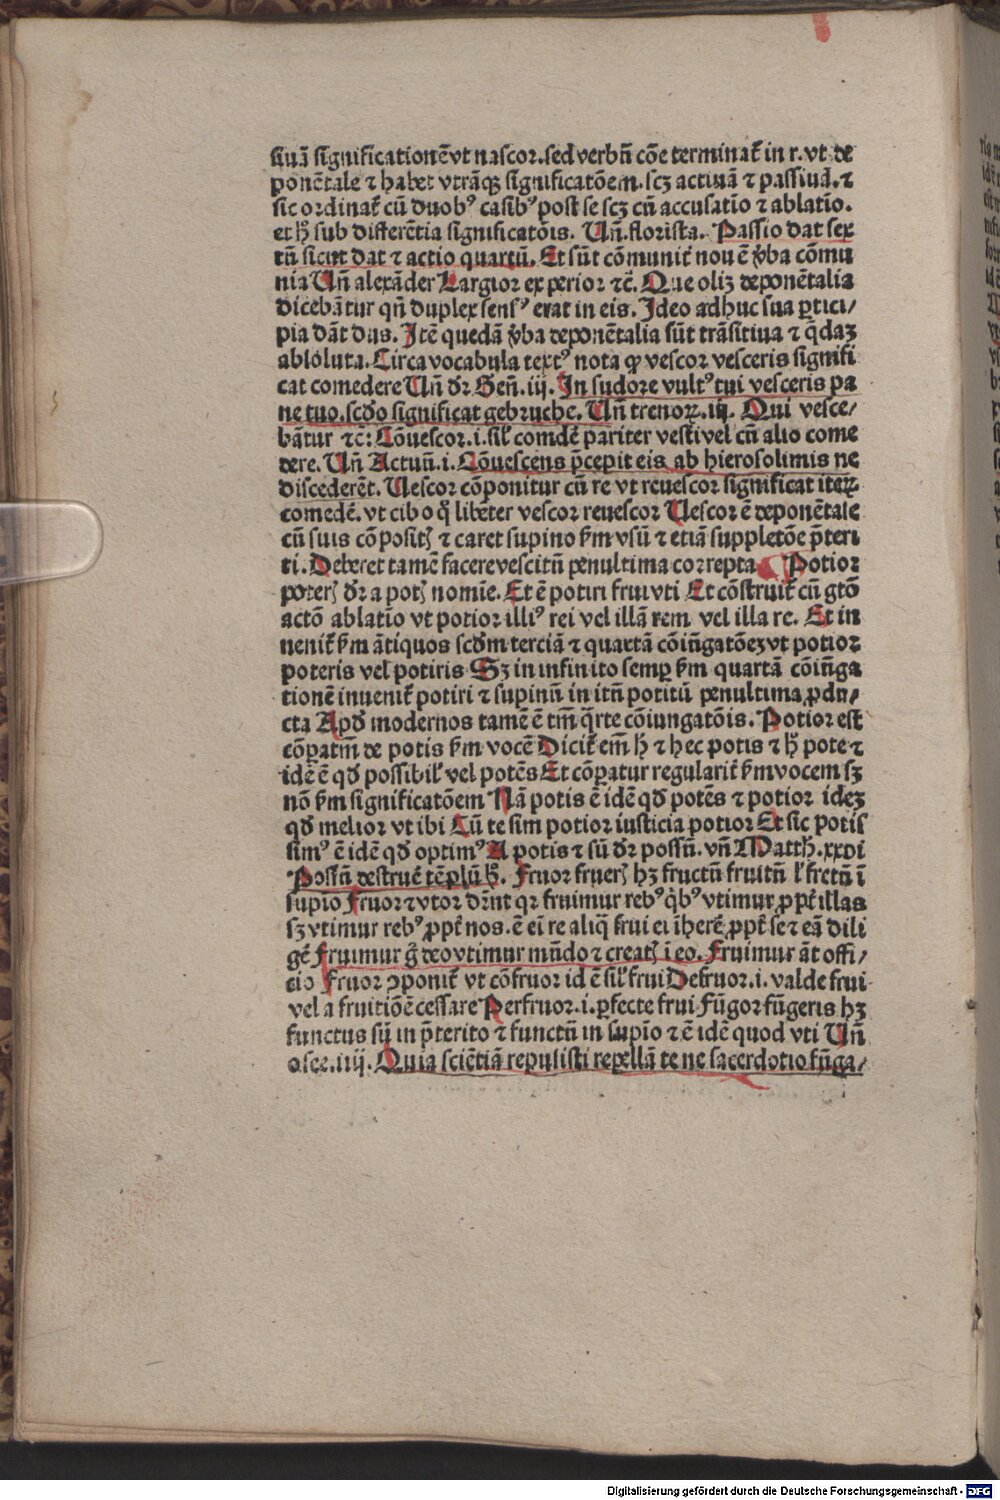 siuā significationē vt nascor. sed verbū cōe terminaṫ in r. vt de
ponētale ⁊ habet vtrāqȝ significatōem. scȝ actiuā ⁊ passiuā. ⁊
sic ordinaṫ cū duobꝰ casibꝰ post se scȝ cū accusatīo ⁊ ablatīo.
et ħ sub differētia significatōis. Uñ. florista. Passio dat sex
tū sicut dat ⁊ actio quartū. Et sūt cōmuniṫ nouē v̾ba cōmu
nia Uñ alexāder Largior experior ⁊c̄. Que oliȝ deponētalia
dicebātur qñ duplex sensꝰ erat in eis. Ideo adhuc sua ꝑtici/
pia dāt dus. Itē quedā v̾ba deponētalia sūt trāsitiua ⁊ q̄daȝ
absoluta. Circa vocabula textꝰ nota ꝙ vescor vesceris signifi
cat comedere Uñ dr̄ Geñ. iij. In sudore vultꝰ tui vesceris pa
ne tuo. scd̄o significat gebruche. Uñ trenoꝝ. iiij. Qui vesce/
bātur ⁊c̄: Cōuescor. i. sil̓ comdē pariter vesci vel cū alio come
dere. Uñ Actuū. i. Cōuescens p̄cepit eis ab hierosolimis ne
discederēt. Uescor cōponitur cū re vt reuescor significat iteꝝ
comedē. vt cibo q̊ libēter vescor reuescor Uescor ē deponētale
cū suis cōpositꝭ ⁊ caret supino ẜm vsū ⁊ etiā suppletōe p̄teri
ti. Deberet tamē facere vescitū penultima correpta. Potior
poterꝭ dr̄ a potꝭ nomīe. Et ē potiri frui vti Et cōstruiṫ cū gtō
actō ablatīo vt potior illiꝰ rei vel illā rem vel illa re. Et in
ueniṫ ẜm ātiquos scd̄m terciā ⁊ quartā cōiūgatōeȝ vt potior
poteris vel potiris Sȝ in infinito semꝑ ẜm quartā cōiūga
tionē inueniṫ potiri ⁊ supinū in itū potitū penultima ꝓdu/
cta Apd̓ modernos tamē ē tm̄ q̄rte cōiungatōis. Potior est
cōꝑatm̄ de potis ẜm vocē Diciṫ em̄ ħ ⁊ hec potis ⁊ ħ pote ⁊
idē ē qd̓ possibil̓ vel potēs Et cōꝑatur regulariṫ ẜm vocem sȝ
nō ẜm significatōem Nā potis ē idē qd̓ potēs ⁊ potior ideȝ
qd̓ melior vt ibi Cū te sim potior iusticia potior Et sic potis
simꝰ ē idē qd̓ optimꝰ A potis ⁊ sū dr̄ possū. vñ Matth̓. xxvi
Possū destruē tēplū h̓. Fruor fruerꝭ hȝ fructū fruitū l̓ fretū ī
supīo Fruor ⁊ vtor dr̄nt qr fruimur rebꝰ q̄bꝰ vtimur ꝓpṫ illas
sȝ vtimur rebꝰ ꝓpṫ nos. ē eī re aliq̄ frui ei īherē ꝓpṫ se ⁊ eā dili
gē Fruimur g̊ deo vtimur mūdo ⁊ creatꝭ ī eo. Fruimur āt offi/
cio Fruor ꝯponiṫ vt cōfruor id ē sil̓ frui Defruor. i. valde frui
vel a fruitiōē cessare Perfruor. i. ꝑfecte frui Fūgor fūgeris hȝ
functus sū in p̄terito ⁊ functū in supīo ⁊ ē idē quod vti Uñ
osee. iiij. Quia sciētiā repulisti repellā te ne sacerdotio fūga/
Digitalisierung gefördert durch die Deutsche Forschungsgemeinschaft - DFG